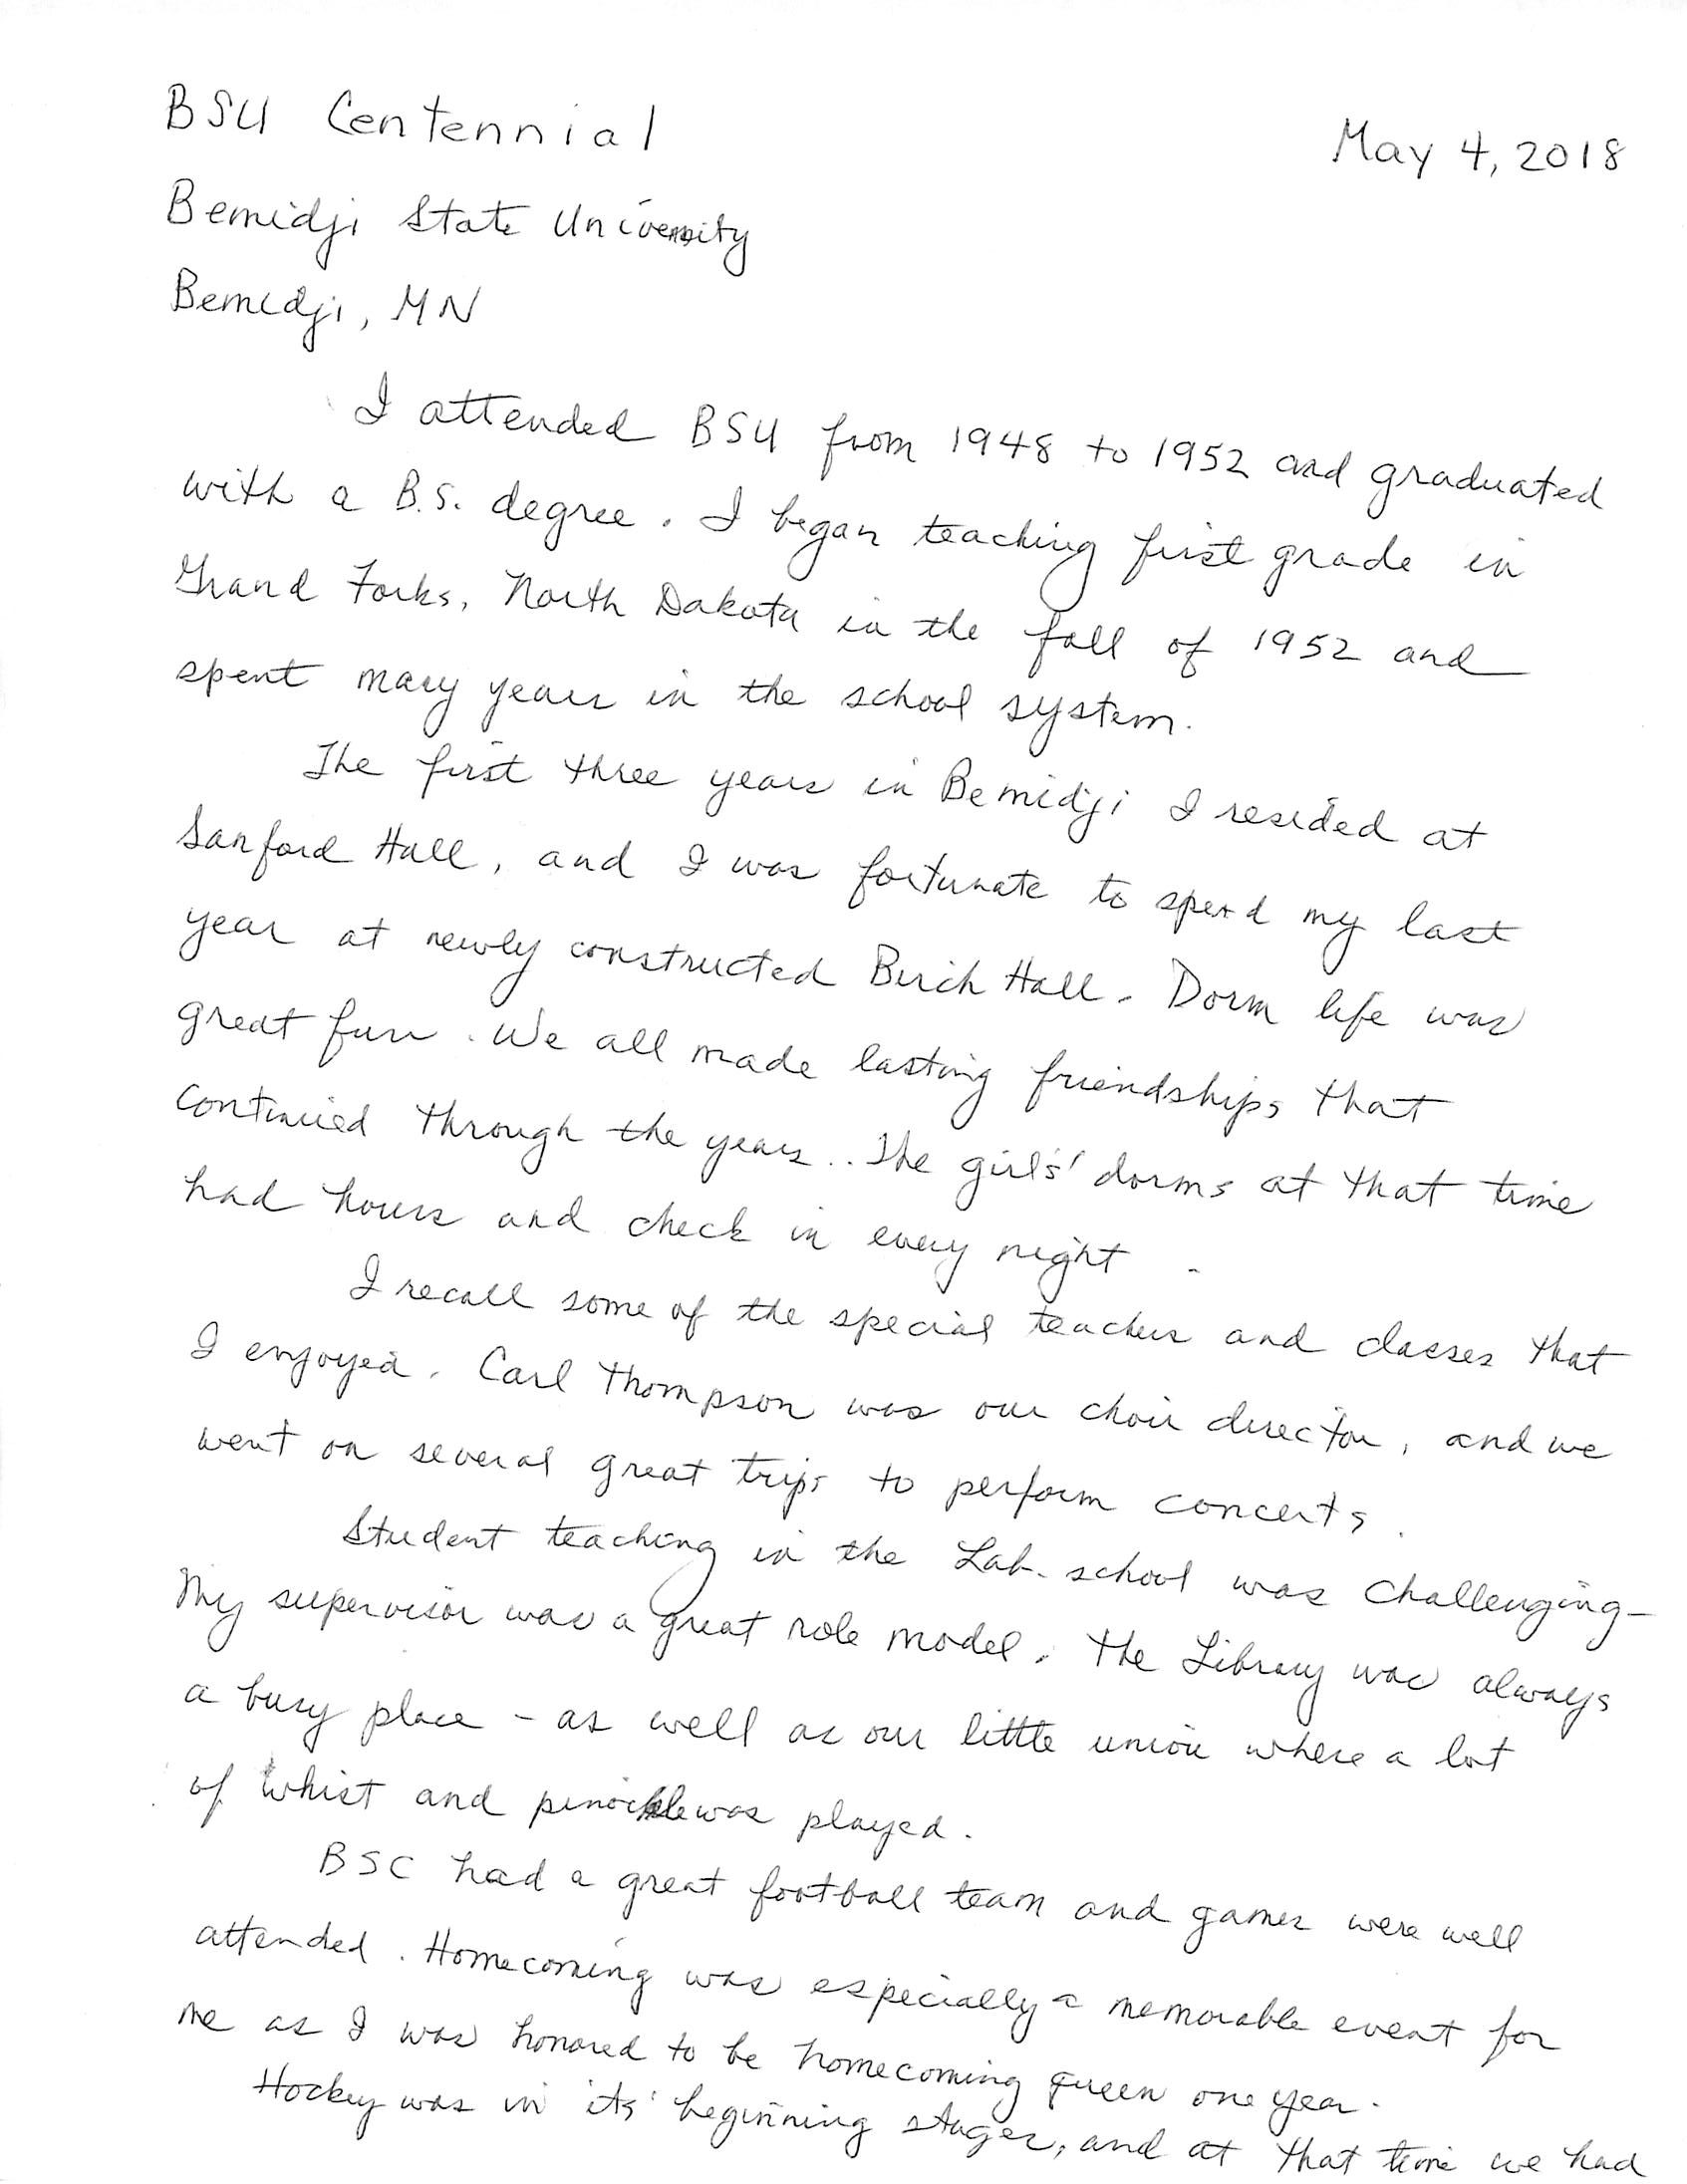 BSU Centennial
May 4, 2018
Bemidji State University
Bemidji, MN
I attended BSU from 1948 to 1952 and graduated
with a B.S. degree. I began teaching first grade in
Grand Forks, North Dakota in the fall of 1952 and
spent many years in the school system.
The first three years in Bemidji I resided at
Sanford Hall, and I was fortunate to spend my last
year at newly constructed Birch Hall. Dorm life was
great fun. We all made lasting friendships that
continued through the years.. The girls' dorms at that time
had hours and check in every night.
I recall some of the special teachers and classes that
I enjoyed. Carl Thompson was our choir director, and we
went on several great trips to perform concerts.
Student teaching in the Lab. school was challenging-
My supervisor was a great role model. The Library was always
a busy place - as well as our little union where a lot
of whist and pinochle was played.
BSC had a great football team and games were well
attended. Homecoming was especially a memorable event for
me as I was honored to be homecoming queen one year.
Hockey was in its' beginning stages, and at that time we had